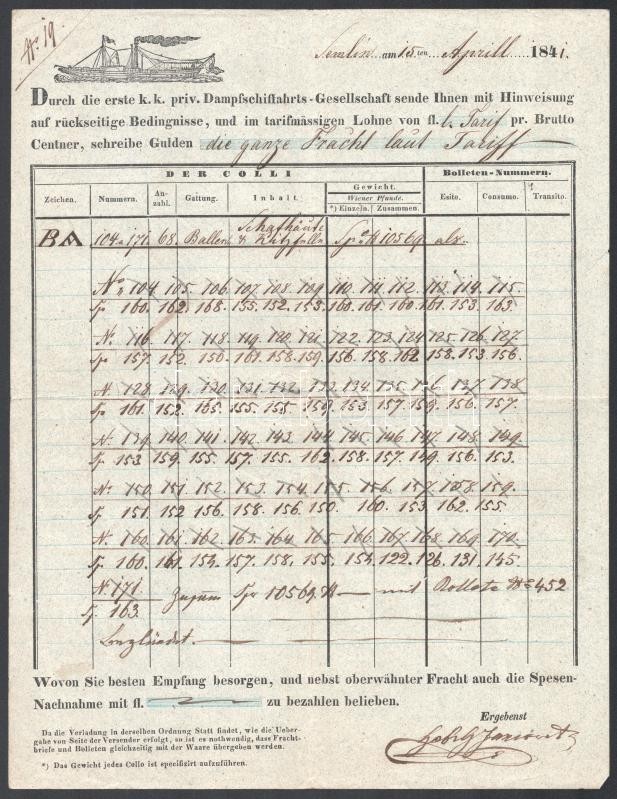 No 19.
Semlin am 15ten Aprill 1841.
Durch die erste k. k. priv. Dampfschiffahrts-Gesellschaft sende Ihnen mit Hinweisung
auf rückseitige Bedingnisse, und im tarifmässigen Lohne von fl. l. Tarif pr. Brutto
Centner, schreibe Gulden die ganze Fracht laut Tariff
DER COLLI Bolleten-Nummern.
Zeichen. Nummern. An-zahl. Gattung. Inhalt. Gewicht. Wiener Pfunde. *) Einzeln. Zusammen. Esito. Consumo. Transito.
BA 104 a 171. 68. Ballen Schafhäute & Kitzfelle Sp. 10569. als.
No 104. 105. 106. 107. 108. 109. 110. 111. 112. 113. 114. 115.
Sp 160. 162. 168. 155. 152. 153. 160. 161. 160. 161. 153. 163.
No 116. 117. 118. 119. 120. 121. 122. 123. 124. 125. 126. 127.
Sp 157. 152. 150. 161. 158. 159. 156. 158. 162. 158. 153. 156.
No 128. 129. 130. 131. 132. 133. 134. 135. 136. 137. 138
Sp 161. 152. 165. 155. 155. 159. 153. 157. 159. 156. 157.
No 139. 140. 141. 142. 143. 144. 145. 146. 147. 148. 149.
Sp 153 159. 155. 157. 155. 162. 158. 157. 149. 156. 153.
No 150. 151. 152. 153. 154. 155. 156. 157. 158. 159.
Sp 151. 152 156. 158. 156. 150. 160. 153. 162. 155.
No 160. 161. 162. 163. 164. 165. 166. 167. 168. 169. 170.
Sp 160. 161. 154. 157. 158. 155. 154. 122. 126. 131. 145.
No 171. Sp 10569 mit Bollete No 452
Sp 163.
Wovon Sie besten Empfang besorgen, und nebst oberwähnter Fracht auch die Spesen-
Nachnahme mit fl. zu bezahlen belieben.
Ergebenst
Da die Verladung in derselben Ordnung Statt findet, wie die Ueber-
gabe von Seite der Versender erfolgt, so ist es nothwendig, dass Fracht-
briefe und Bolleten gleichzeitig mit der Waare übergeben werden.
*) Das Gewicht jedes Collo ist specifizirt aufzuführen.